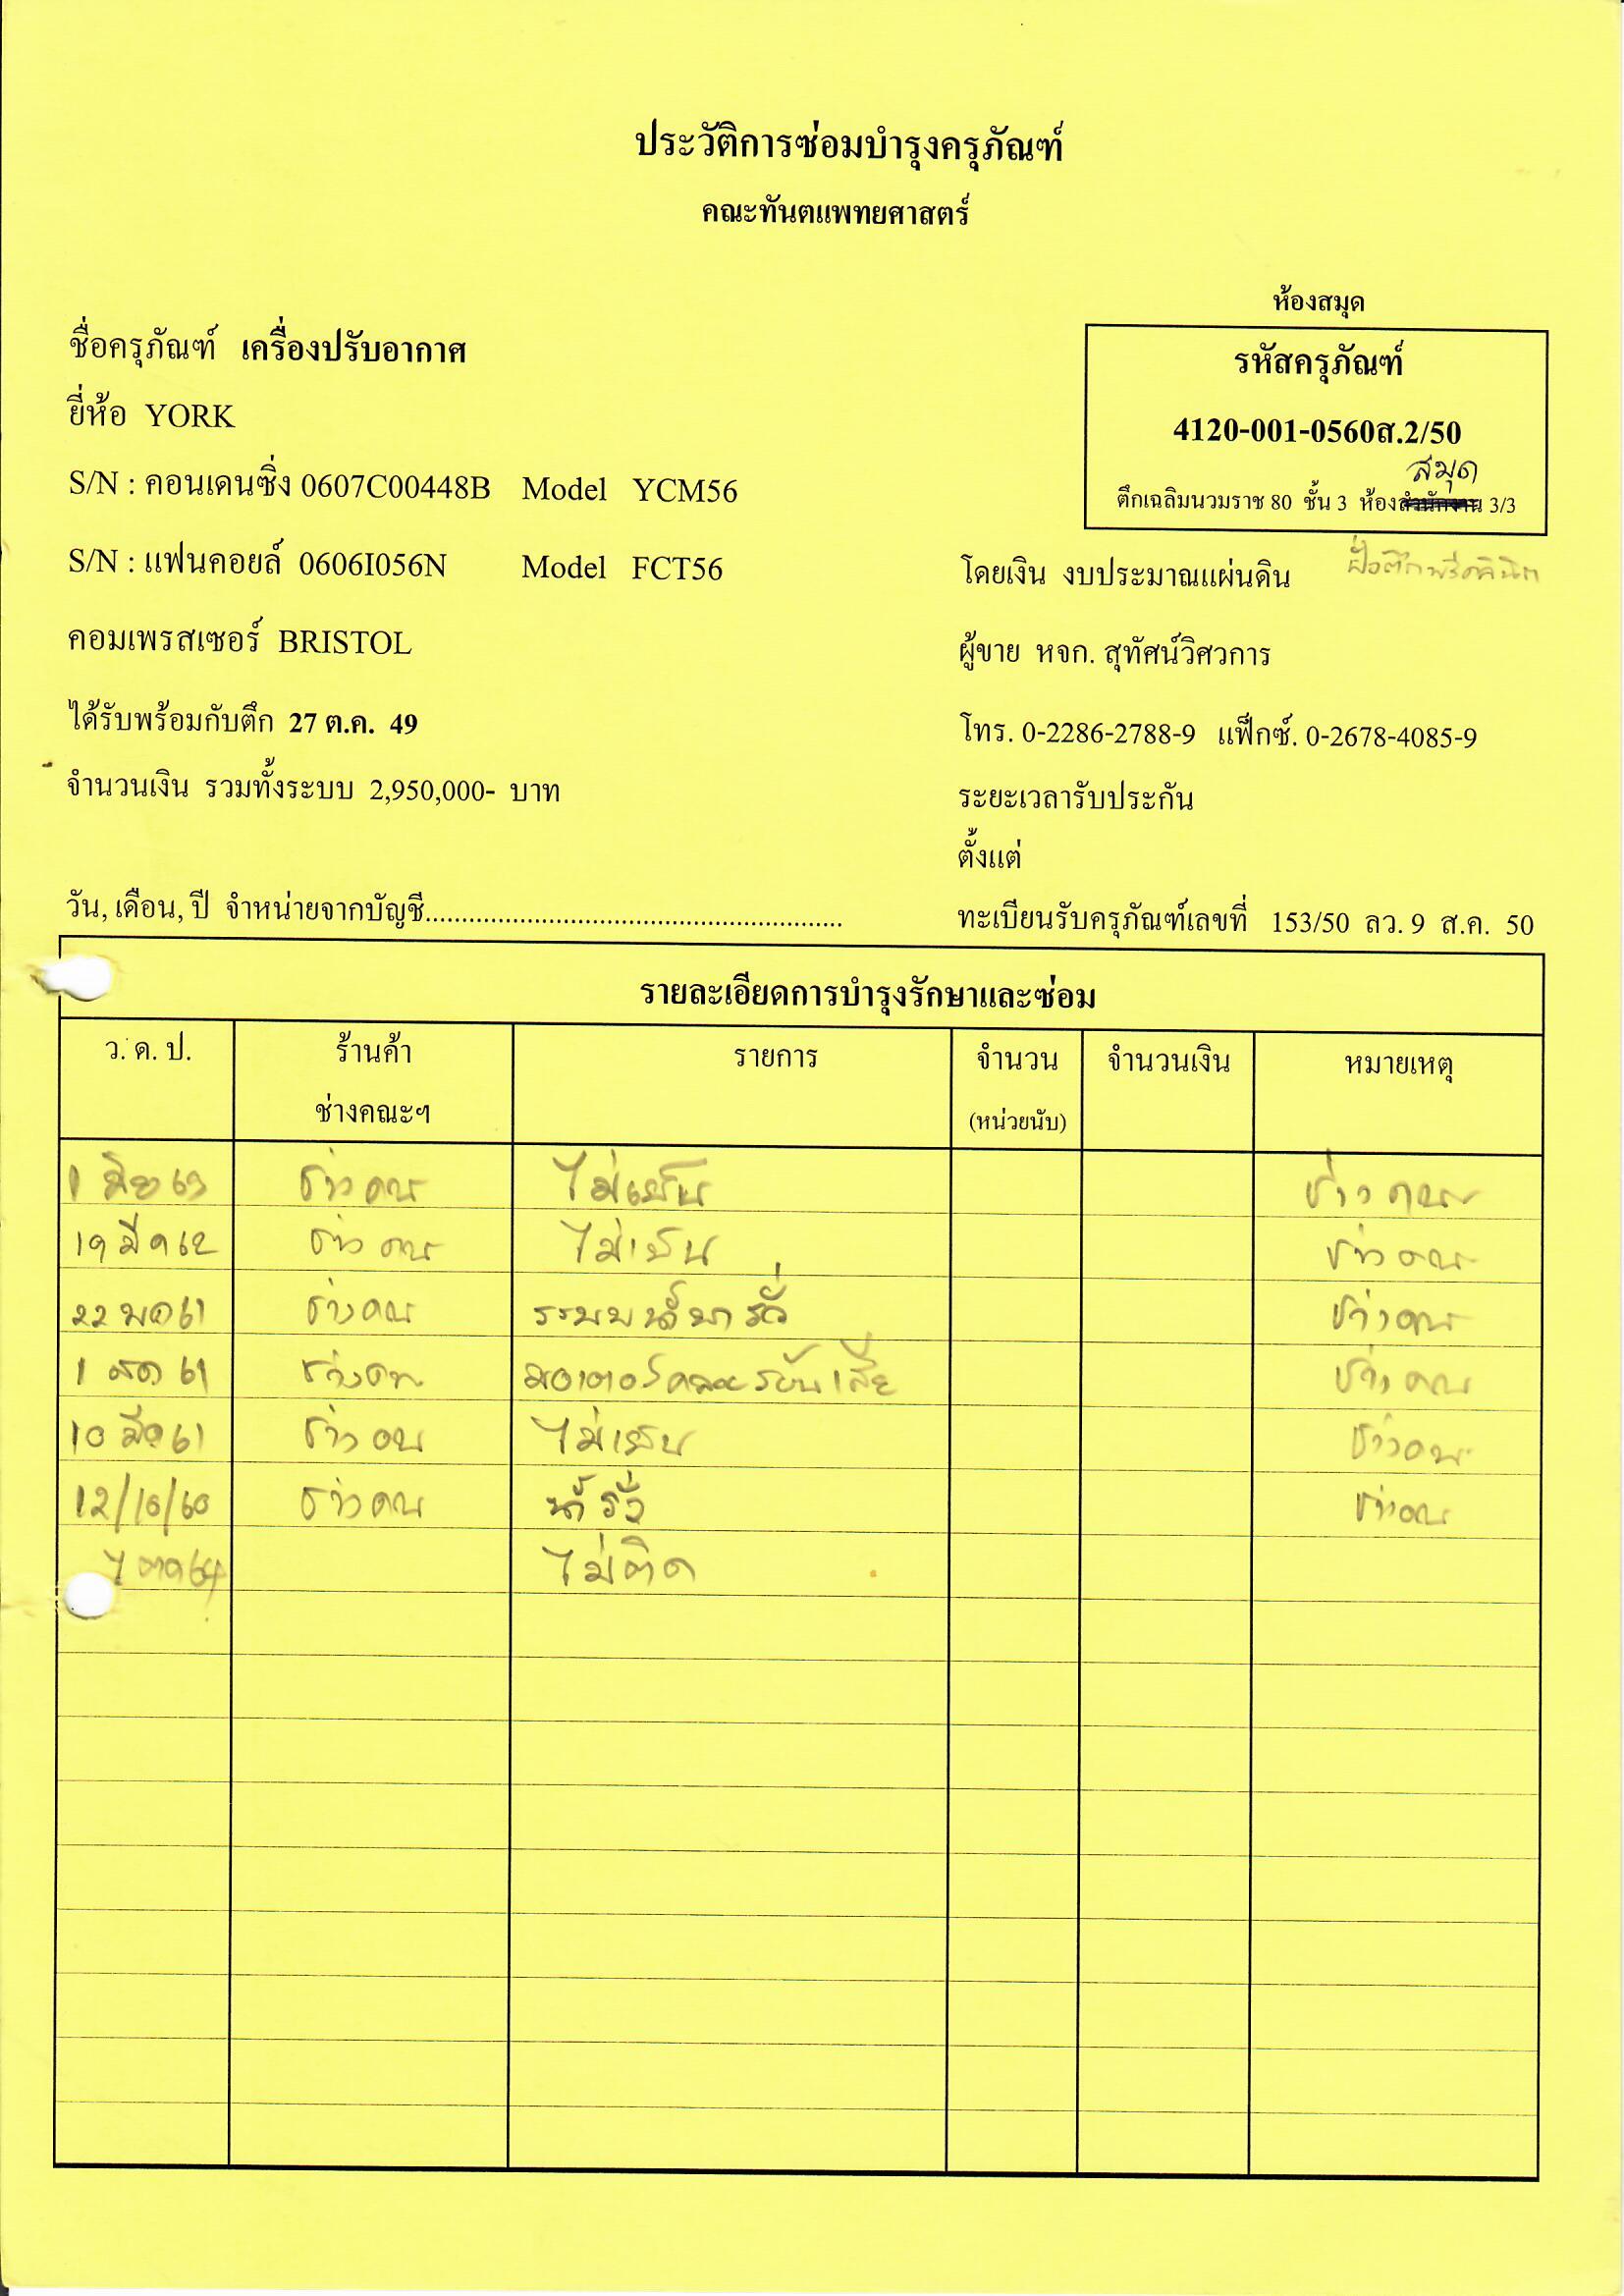 ประวัติการซ่อมบำรุงครุภัณฑ์
คณะทันตแพทยศาสตร์
ห้องสมุด
ชื่อครุภัณฑ์ เครื่องปรับอากาศ
รหัสครุภัณฑ์
ยี่ห้อ YORK
4120-001-0560ส.2/50
สมุด
S/N : คอนเดนซิ่ง 0607C00448B Model YCM56
ตึกเฉลิมนวมราช 80 ชั้น 3 ห้องสำนักงาน 3/3
S/N : แฟนคอยล์ 0606I056N Model FCT56
โดยเงิน งบประมาณแผ่นดิน ฝั่งตึกพรีคลินิก
คอมเพรสเซอร์ BRISTOL
ผู้ขาย หจก. สุทัศน์วิศวการ
ได้รับพร้อมกับตึก 27 ต.ค. 49
โทร. 0-2286-2788-9 แฟ็กซ์. 0-2678-4085-9
จำนวนเงิน รวมทั้งระบบ 2,950,000- บาท
ระยะเวลารับประกัน
ตั้งแต่
วัน, เดือน, ปี จำหน่ายจากบัญชี..........................................................
ทะเบียนรับครุภัณฑ์เลขที่ 153/50 ลว. 9 ส.ค. 50
รายละเอียดการบำรุงรักษาและซ่อม
ว. ด. ป. ร้านค้า รายการ จำนวน จำนวนเงิน หมายเหตุ
ช่างคณะฯ (หน่วยนับ)
1 มิย ช่างคณะ ไม่เย็น ช่างคณะ
19 มีค 62 ช่างคณะ ไม่เย็น ช่างคณะ
22 พค 61 ช่างคณะ รั่ว ช่างคณะ
1 61 ช่างคณะ มอเตอร์ เสีย ช่างคณะ
10 มีค 61 ช่างคณะ ไม่เย็น ช่างคณะ
12/10/60 ช่างคณะ น้ำรั่ว ช่างคณะ
7 ตค 64 ไม่ติด